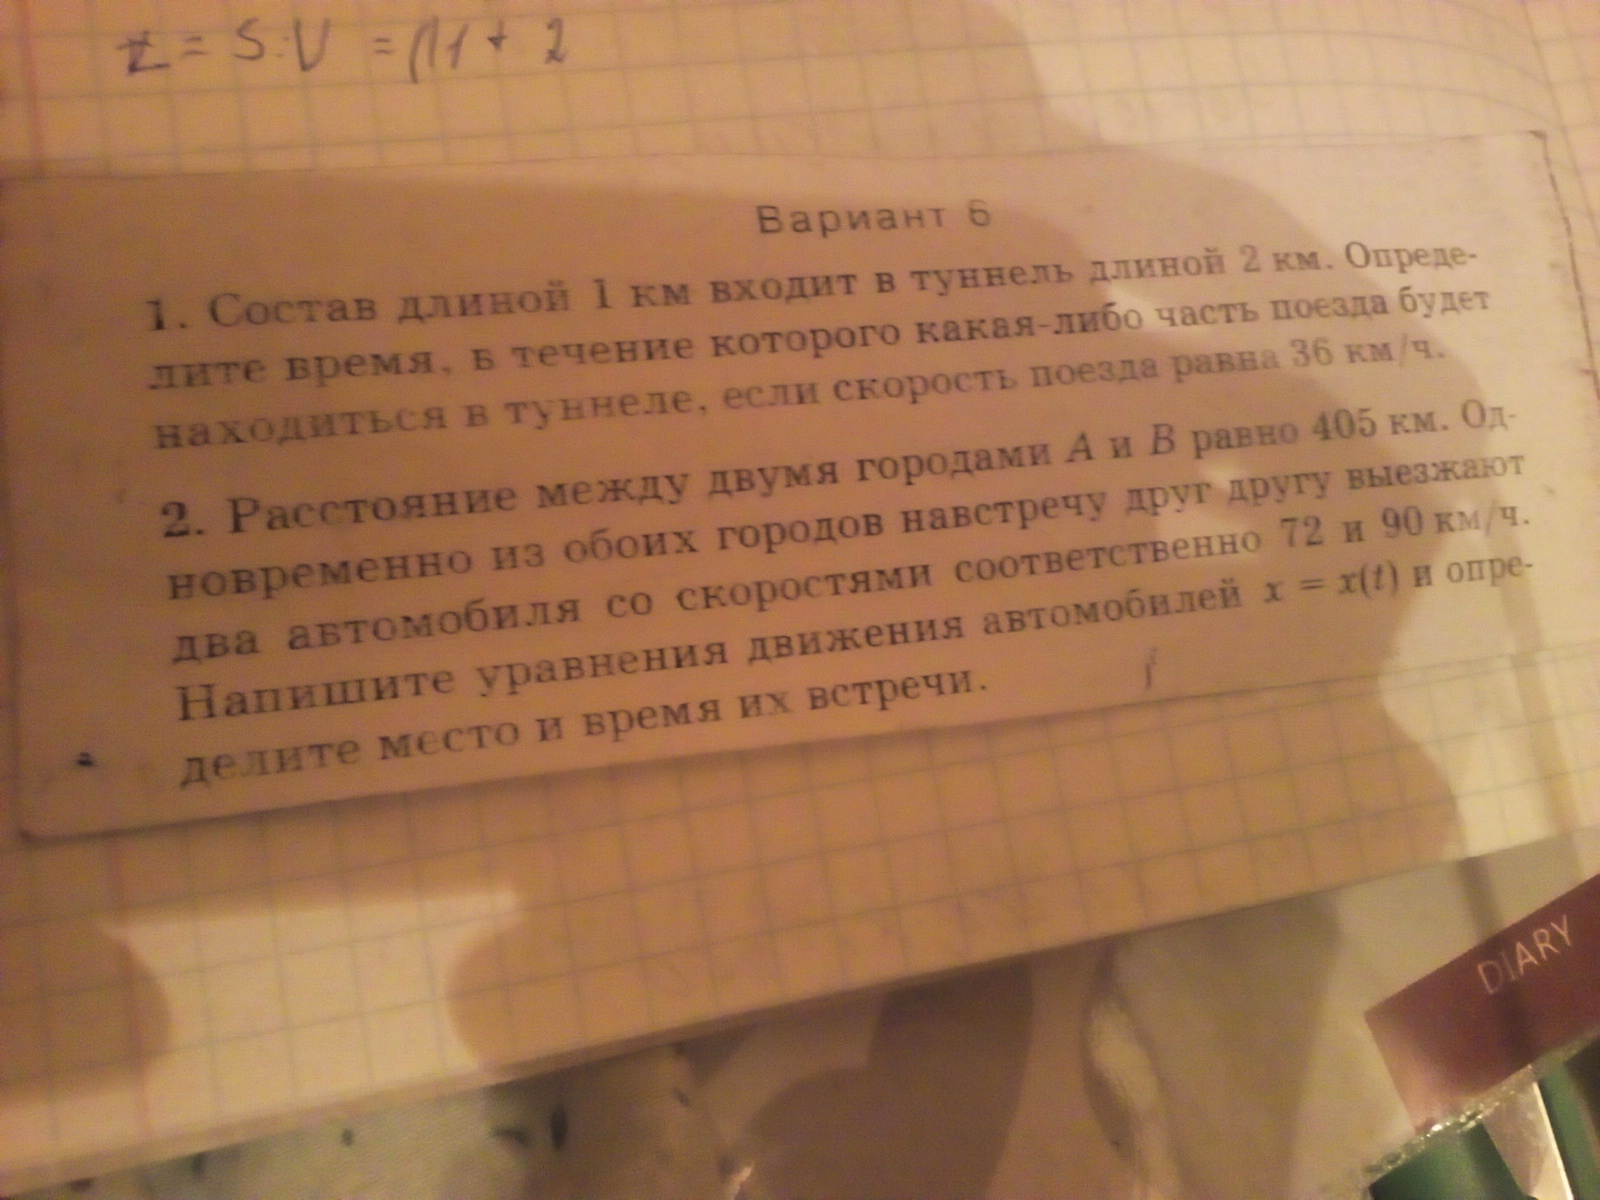 t = S:V = (1 + 2
Вариант 6
1. Состав длиной 1 км входит в туннель длиной 2 км. Опреде-
лите время, в течение которого какая-либо часть поезда будет
находиться в туннеле, если скорость поезда равна 36 км/ч.
2. Расстояние между двумя городами A и B равно 405 км. Од-
новременно из обоих городов навстречу друг другу выезжают
два автомобиля со скоростями соответственно 72 и 90 км/ч.
Напишите уравнения движения автомобилей x = x(t) и опре-
делите место и время их встречи.
DIARY